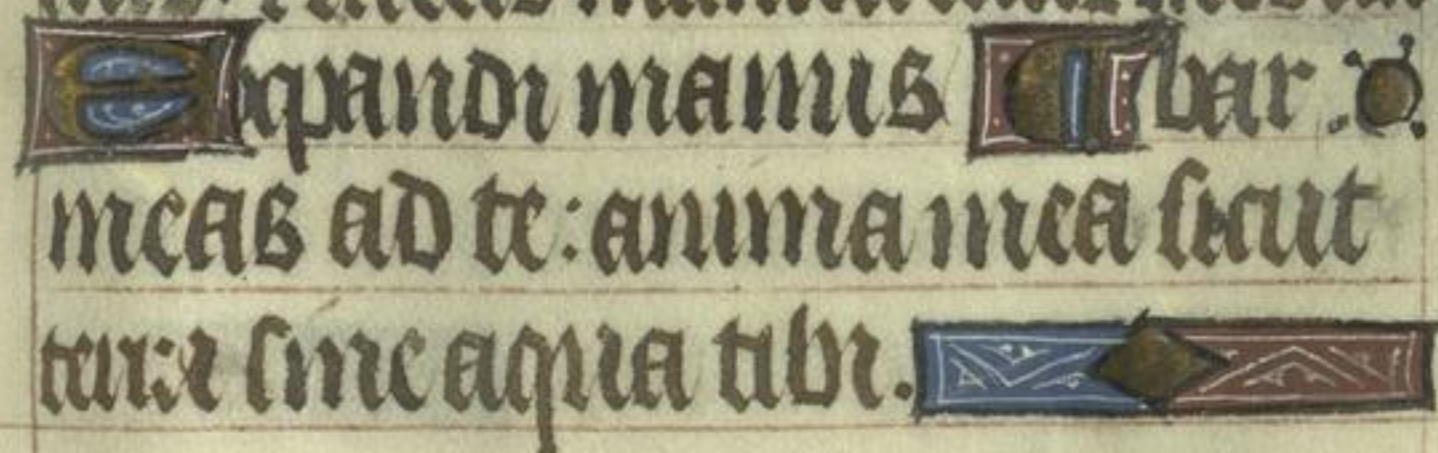 Expandi manus ¶ bar.
meas ad te: anima mea sicut
terra sine aqua tibi.